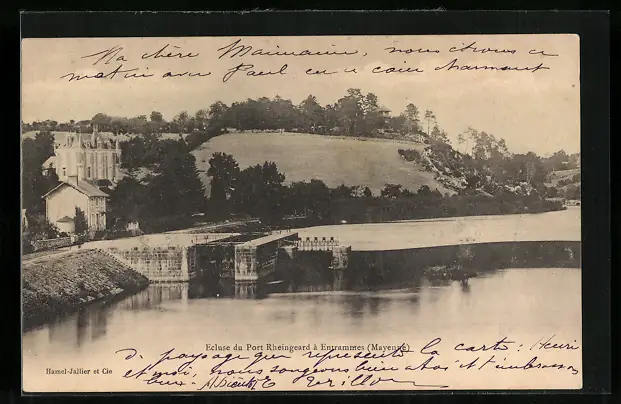 Ma chère Maimaine, nous étions ce
matin avec Paul en ce coin charmant
Ecluse du Port Rheingeard à Entrammes (Mayenne)
du paysage que représente la carte: Henri
et moi, nous songeons bien à toi et t'embrassons
bien.
Hamel-Jallier et Cie